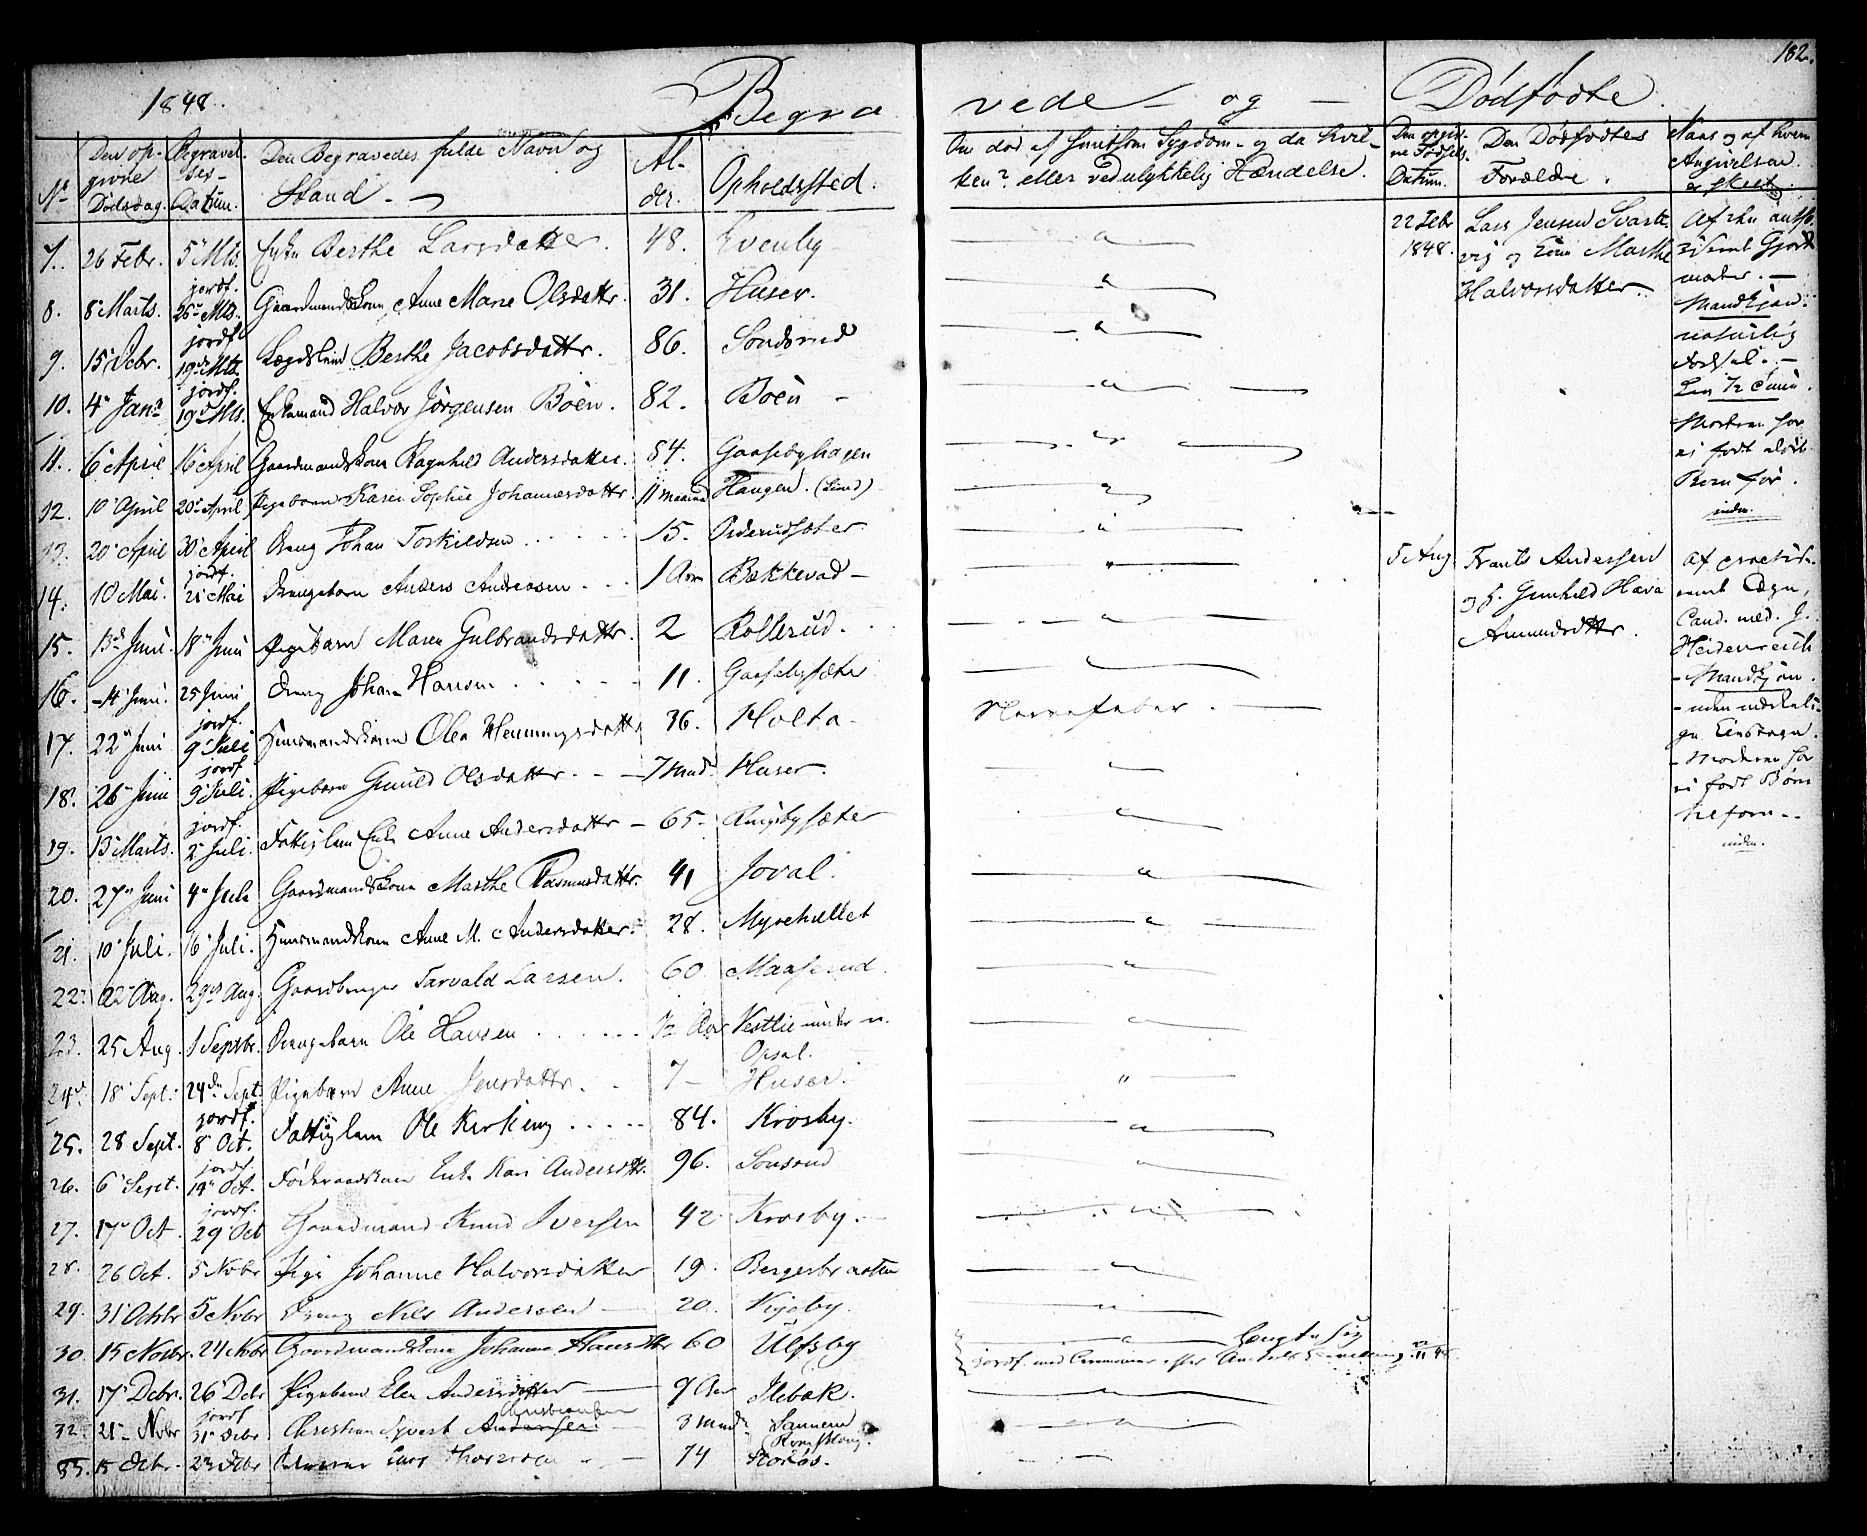 182.
1848.
Begravede og Dødfødte.
No
Den opgivne Dødsdag.
Begravelses-Datum.
Den Begravedes fulde Navn og Stand
Alder.
Opholdssted.
Om død af smitsom Sygdom og da hvilken? eller ved ulykkelig Hændelse.
Den opgivne Fødsels Datum.
Den Dødfødtes Forældre.
Naar og af hvem Angivelsen er skeet.
7. 26 Febr. 5 Mts. Enke Berthe Larsdatter. 48. Evenby
8. 8 Marts. jordf. 26 Mts. Gaardmandskone Anne Marie Olsdattr. 31. Huser.
9. 15 Debr. jordf. 19 Mts. Lægdslem Berthe Jacobsdattr. 86. Sondsrud
10. 4 Janr jordf. 19 Mts. Enkemand Halvor Jørgensen Böen. 82. Böen
11. 6 April 16 April Gaardmandskone Ragnhild Andersdatter. 84. Gaasebyhagen
12. 10 April 20 April Pigebarn Karen Sophie Johannesdattr. 11 maaned Haugen. (Lund)
13. 20 April 30 April Dreng Johan Torkildsen 15. Oserudsæter
14. 10 Mai. jordf. 21 Mai Drengebarn Anders Andreasen 1 Aar Bækkevad
15. 13 Juni. 18 Juni Pigebarn Maren Gulbrandsdattr. 2 Rollerud.
16. 14 Juni. 25 Juni Dreng Johan Hansen 11. Gaasebysæter
17. 22 Juni jordf. 9 Juli Huusmandskone Olea Hemmingsdattr 36. Holta Nervefeber.
18. 26 Juni jordf. 9 Juli. Pigebarn Gunild Olsdattr. 7 Mnd. Huser.
19. 13 Marts. jordf. 2 Juli. Fattiglem Enke Anne Andersdattr 65. Ringsbysæter
20. 27 Juni 4 Juli Gaardmandskone Marthe Rasmusdattr. 41 Joval.
21. 10 Juli. 16 Juli. Huusmandskone Anne M. Andersdatter. 28. Myrehullet
22. 22 Aug. 29 Aug. Gaardbruger Tarvald Larsen. 60. Maaserud.
23. 25 Aug. 1 Septbr. Drengebarn Ole Hansen ½ Aar Vestlie under n. Opsal.
24. 18 Sept. 24de Sept. Pigebarn Anne Jensdattr. 7 Huser.
25. 28 Sept. jordf. 8 Oct. Fattiglem Ole Kirkeng 84. Krosby.
26. 6 Sept. jordf. 19 Oct. Føderaadskone Enke Kari Andersdttr. 96. Sonsrud
27. 17 Oct. jordf. 29 Oct Gaardmand Knud Iversen 42 Krosby.
28. 26 Oct. 5 Nvbr Pige Johanne Halvorsdatter 19. Bergerbraaten
29. 31 Octbr 5 Nvbr Dreng Nils Andersen 20. Vigeby.
30. 15 Novbr. 24 Nvbr Gaardmandskone Johanne Hansdttr 60 Ulfsby
31. 17 Debr. 26 Debr Pigebarn Elen Andersdatter 9 Aar Ilebæk.
32. 21 Nvbr jordf. 31 Debr Christian Sjvert Andersen Christiansen 3 Mnd. Sannerud (Romskoug).
33. 15 Debr. 23 Debr Lars 74 Stokøs.
22 Febr 1848. Lars Jensen Svartvig og Kone Marthe Halvorsdatter.
Gjordmoder.
Mandkjøn.
naturlig
Moderen har
ei født dødt
Barn før.
5 Aug. Frants Andersen
og H. Gunhild Hava
Amundsdttr.
Af practis.
Cand. med. J.
Heidenreich
Mandkjøn.
uden
Moderen har
ei født Børn